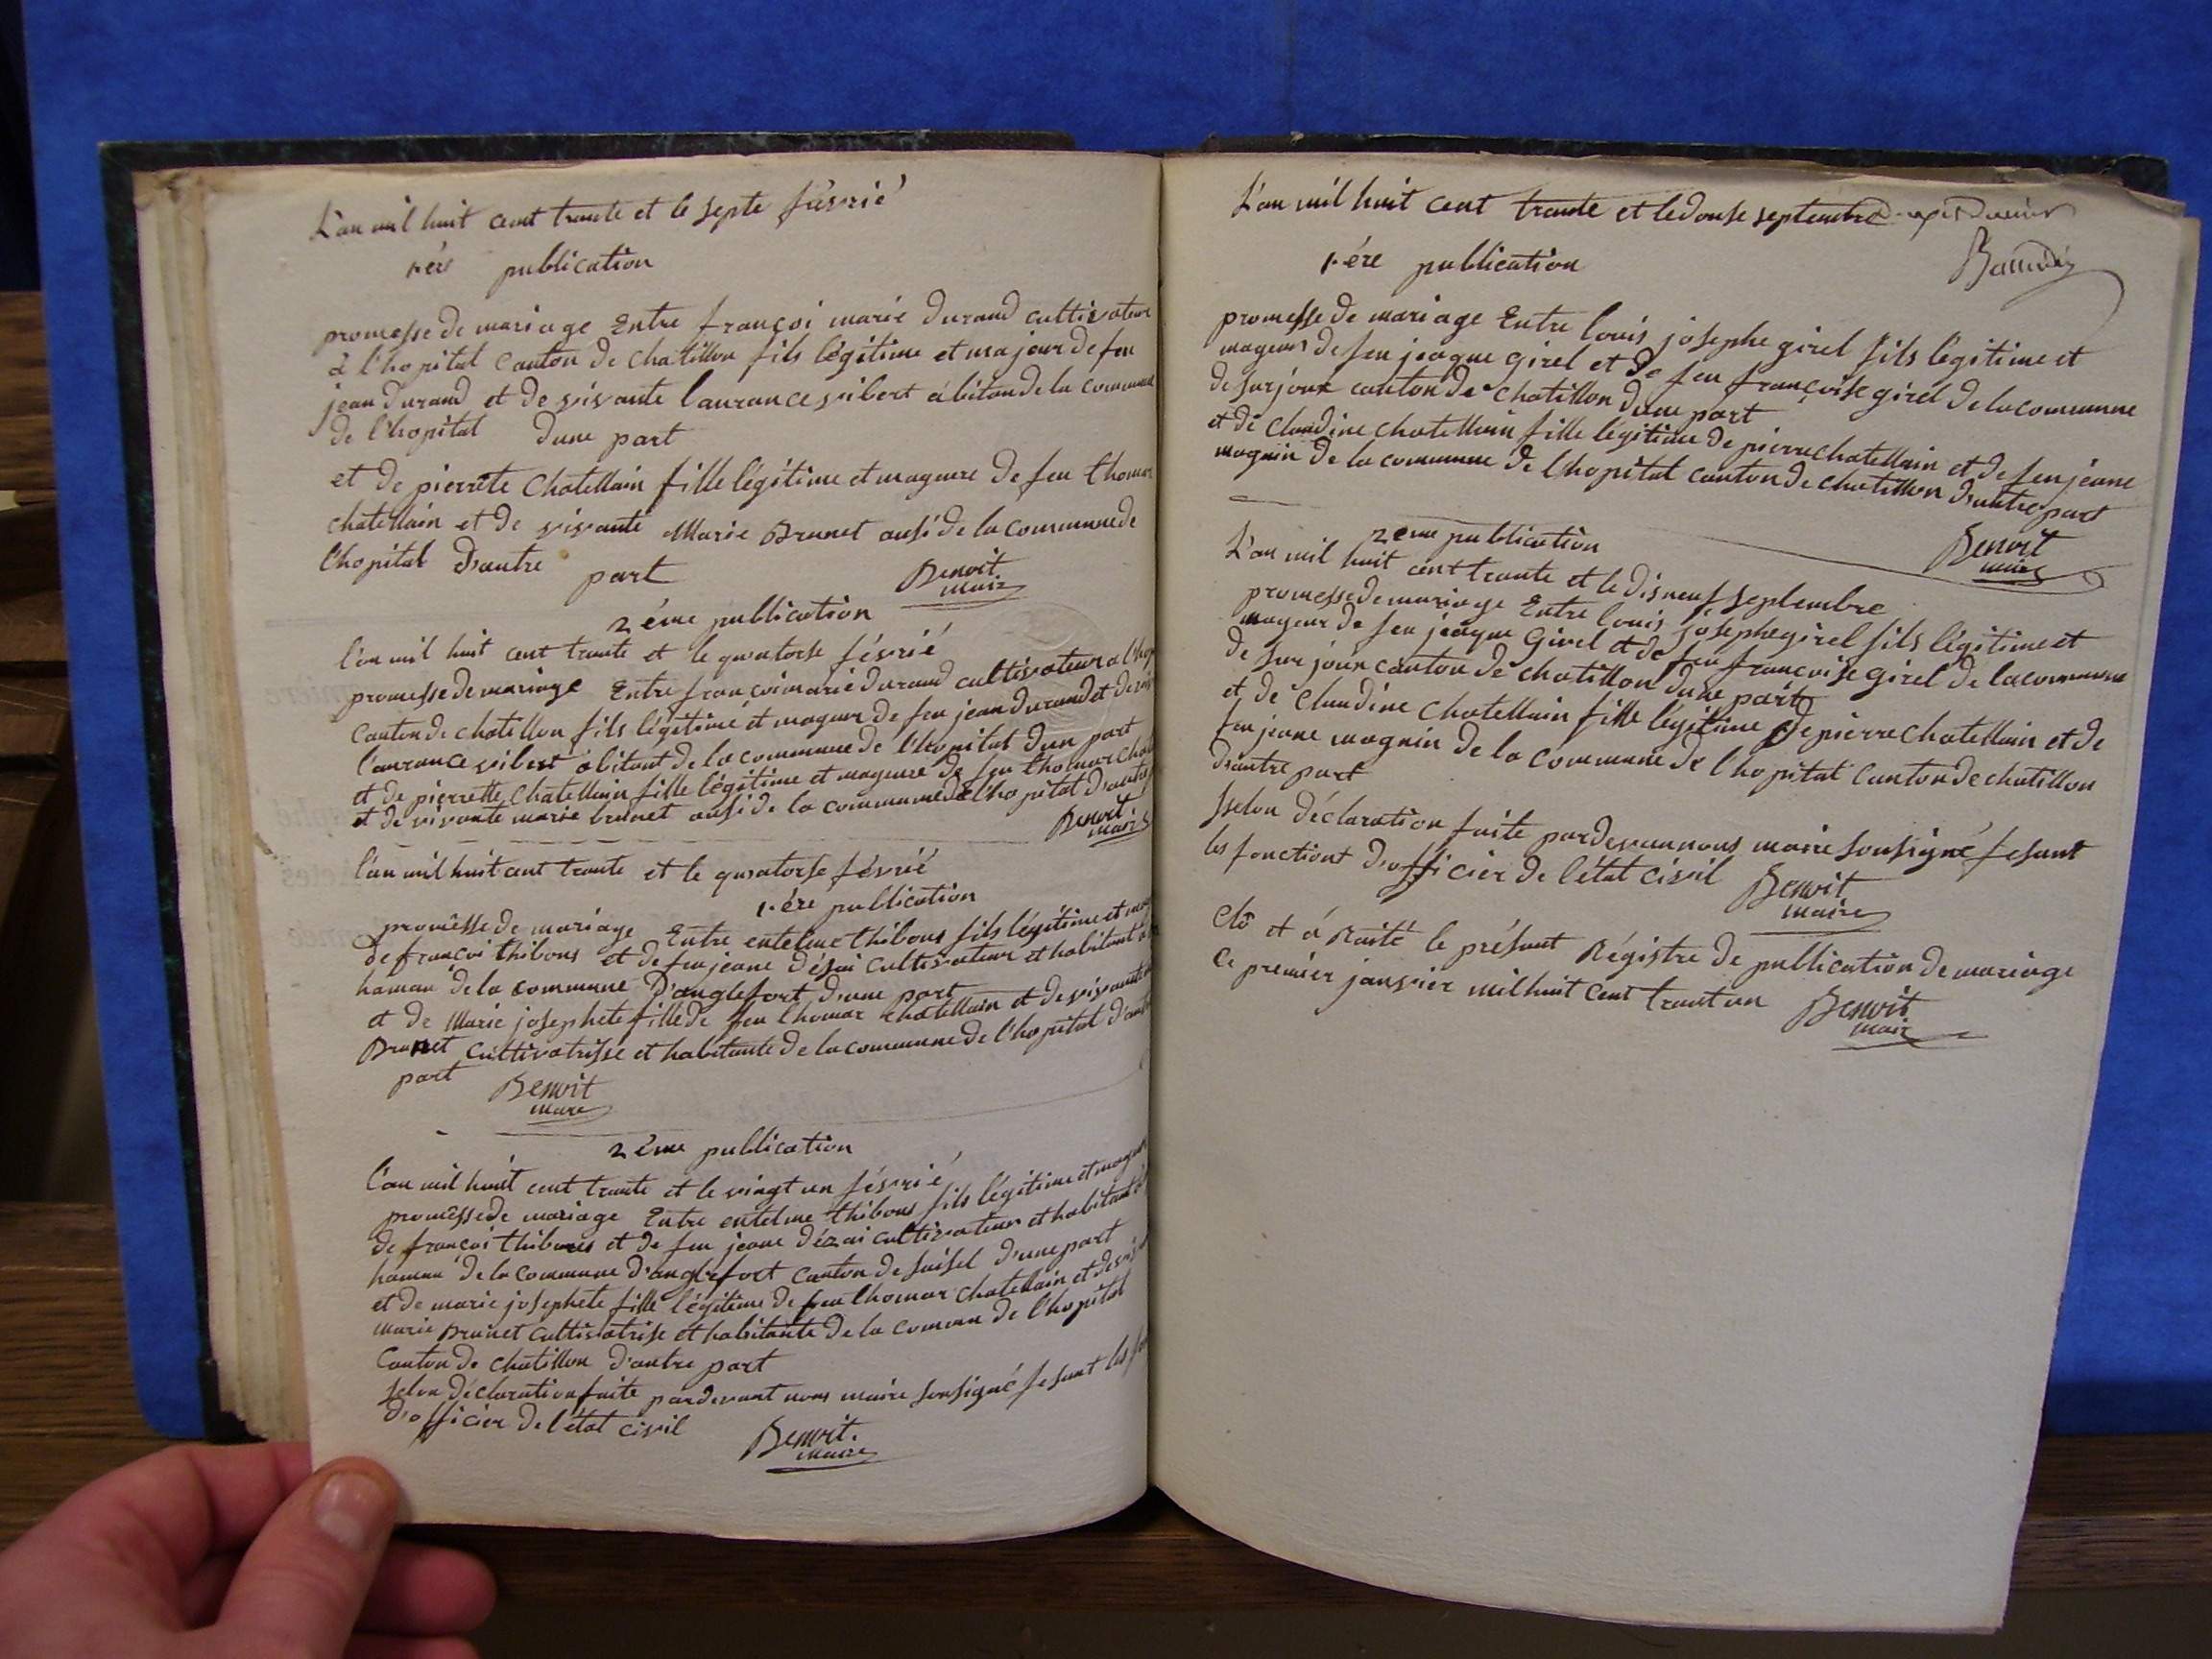 L'an mil huit cent trante et le septe févrié
1.ère publication
promesse de mariage Entre françoi marie Durand cultivateur
à l'hopital canton de chatillon fils légitime et majeur de feu
jean Durand et de vivante laurance vibert abitan de la commune
de l'hopital dune part
et de pierrete Chatellain fille légitime et mageure de feu thomas
chatellain et de vivante Marie Brunet ausi de la commune de
l'hopital d'autre part
Benoit
maire
2 éme publication
l'an mil huit cent trante et le quatorse févrié
promesse de mariage Entre françoi marie durand cultivateur a l'hop
canton de chatillon fils légitime et mageur de feu jean durand et de viv
laurance vibert abitant de la commune de l'hopital dun part
et de pierrette Chatellain fille légitime et mageure de feu thomas chat
et de vivante marie brunet ausi de la commune de l'hopital d'autre
Benoit
maire
l'an mil huit cent trante et le quatorse févrié
1.ére publication
promêsse de mariage Entre entelme thibous fils légitime et ma
de françoi thibous et de feu jeane dézai cultivateur et habitant à
hamau de la commune D'anglefort d'une part
et de Marie josephete fille de feu thomas chatellain et de vivante
Brunet cultivatrisse et habitante de la commune de l'hopital d'autre
part
Benoit
maire
2 éme publication
l'an mil huit cent trante et le vingt un févrié
promêsse de mariage Entre entelme thibous fils légitime et mageur
de françoi thibous et de feu jeane dézai cultivateur et habitant à
hamau de la commune d'anglefort canton de saisel d'une part
et de marie josephete fille légitime de feu thomas chatellain et de viv
marie Brunet cultivatrise et habitante de la comun de l'hopital
Canton de chatillon d'autre part
selon déclaration faite pardevant nous maire sousigné fesant les fo
d'officier de l'état civil
Benoit.
maire
L'an mil huit cent trante et le douse septembre
1.ére publication
promesse de mariage Entre louis josephe girel fils légitime et
mageur de feu jeaque girel et de feu françoise girel de la commune
de surjoux canton de chatillon dune part
et de claudine chatellain fille légitime de pierre chatellain et de feu jeane
magnin de la commune de l'hopital canton de chatillon d'autre part
Benoit
maire
2 éme publication
L'an mil huit cent trante et le disneuf septembre
promesse de mariage Entre louis josephe girel fils légitime et
mageur de feu jeaque Girel et de feu françoise girel de la commune
de surjoux canton de chatillon dune part
et de claudine chatellain fille légitime de pierre chatellain et de
feu jeane magnin de la commune de l'hopital canton de chatillon
d'autre part
sselon déclaration faite pardevan nous maire sousigné fesant
les fonctions d'officier de l'état civil
Benoit
maire
clô et áraité le présant Régistre de publication de mariage
ce premier janvier mil huit cent trant un
Benoit
maire